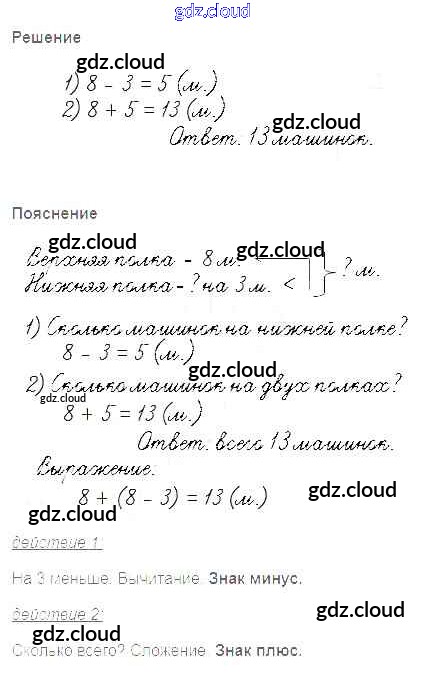 gdz.cloud
Решение
gdz.cloud gdz.cloud
1) 8 - 3 = 5 (м.)
2) 8 + 5 = 13 (м.)
gdz.cloud
Ответ. 13 машинок.
Пояснение
gdz.cloud gdz.cloud
Верхняя полка - 8 м.
Нижняя полка - ? на 3 м. <
? м.
gdz.cloud gdz.cloud
1) Сколько машинок на нижней полке?
8 - 3 = 5 (м.)
gdz.cloud
2) Сколько машинок на двух полках?
gdz.cloud
8 + 5 = 13 (м.)
gdz.cloud
Ответ. всего 13 машинок.
Выражение:
8 + (8 - 3) = 13 (м.)
gdz.cloud
gdz.cloud
действие 1:
На 3 меньше. Вычитание. Знак минус.
действие 2:
gdz.cloud
gdz.cloud
Сколько всего? Сложение. Знак плюс.